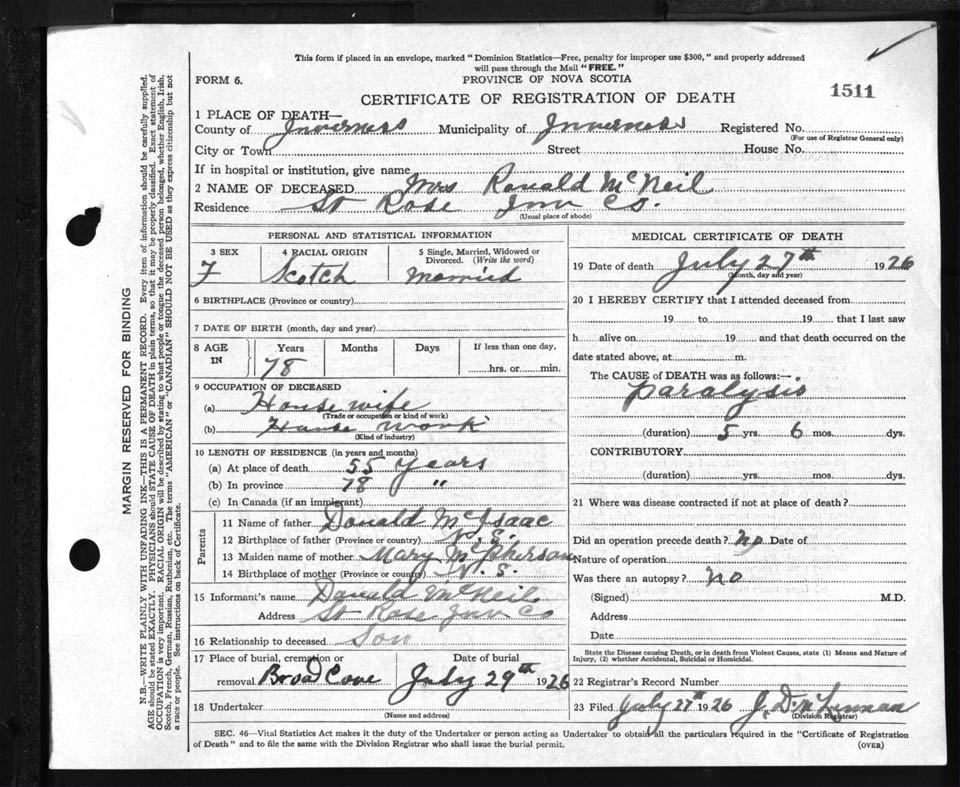 This form if placed in an envelope, marked "Dominion Statistics—Free, penalty for improper use $300," and properly addressed
will pass through the Mail "FREE."
FORM 6.
PROVINCE OF NOVA SCOTIA
1511
CERTIFICATE OF REGISTRATION OF DEATH
1 PLACE OF DEATH—
County of Inverness Municipality of Inverness Registered No.
(For use of Registrar General only)
City or Town Street House No.
If in hospital or institution, give name
2 NAME OF DECEASED Mrs Ronald McNeil
Residence St Rose Inv Co.
(Usual place of abode)
PERSONAL AND STATISTICAL INFORMATION
3 SEX 4 RACIAL ORIGIN 5 Single, Married, Widowed or
Divorced. (Write the word)
F Scotch Married
6 BIRTHPLACE (Province or country)
7 DATE OF BIRTH (month, day and year)
8 AGE IN Years Months Days If less than one day,
78 hrs. or min.
9 OCCUPATION OF DECEASED
(a) House wife
(Trade or occupation or kind of work)
(b) House work
(Kind of industry)
10 LENGTH OF RESIDENCE (in years and months)
(a) At place of death 55 years
(b) In province 78 "
(c) In Canada (if an immigrant)
Parents
11 Name of father Donald McIsaac
12 Birthplace of father (Province or country) N.S.
13 Maiden name of mother Mary McPherson
14 Birthplace of mother (Province or country) N.S.
15 Informant's name Donald McNeil
Address St Rose Inv Co
16 Relationship to deceased Son
17 Place of burial, cremation or Date of burial
removal Broad Cove July 29th 1926
18 Undertaker
(Name and address)
MEDICAL CERTIFICATE OF DEATH
19 Date of death July 27th 1926
(Month, day and year)
20 I HEREBY CERTIFY that I attended deceased from
19 to 19 that I last saw
h alive on 19 and that death occurred on the
date stated above, at m.
The CAUSE of DEATH was as follows:—
Paralysis
(duration) 5 yrs. 6 mos. dys.
CONTRIBUTORY
(duration) yrs. mos. dys.
21 Where was disease contracted if not at place of death?
Did an operation precede death? no Date of
Nature of operation
Was there an autopsy? no
(Signed) M.D.
Address
Date
State the Disease causing Death, or in death from Violent Causes, state (1) Means and Nature of
Injury, (2) whether Accidental, Suicidal or Homicidal.
22 Registrar's Record Number
23 Filed July 27th 1926 J. D.
(Division Registrar)
SEC. 46—Vital Statistics Act makes it the duty of the Undertaker or person acting as Undertaker to obtain all the particulars required in the "Certificate of Registration
of Death" and to file the same with the Division Registrar who shall issue the burial permit.
(OVER)
MARGIN RESERVED FOR BINDING
N.B.—WRITE PLAINLY WITH UNFADING INK—THIS IS A PERMANENT RECORD. Every item of information should be carefully supplied.
AGE should be stated EXACTLY. PHYSICIANS should STATE CAUSE OF DEATH in plain terms, so that it may be properly classified. Exact statement of
OCCUPATION is very important. RACIAL ORIGIN will be described by stating to what people or tongue the deceased person belonged, whether English, Irish,
Scotch, French, German, Russian, Ruthenian, etc. The terms "AMERICAN" or "CANADIAN" SHOULD NOT BE USED as they express citizenship but not
a race or people. See instructions on back of Certificate.